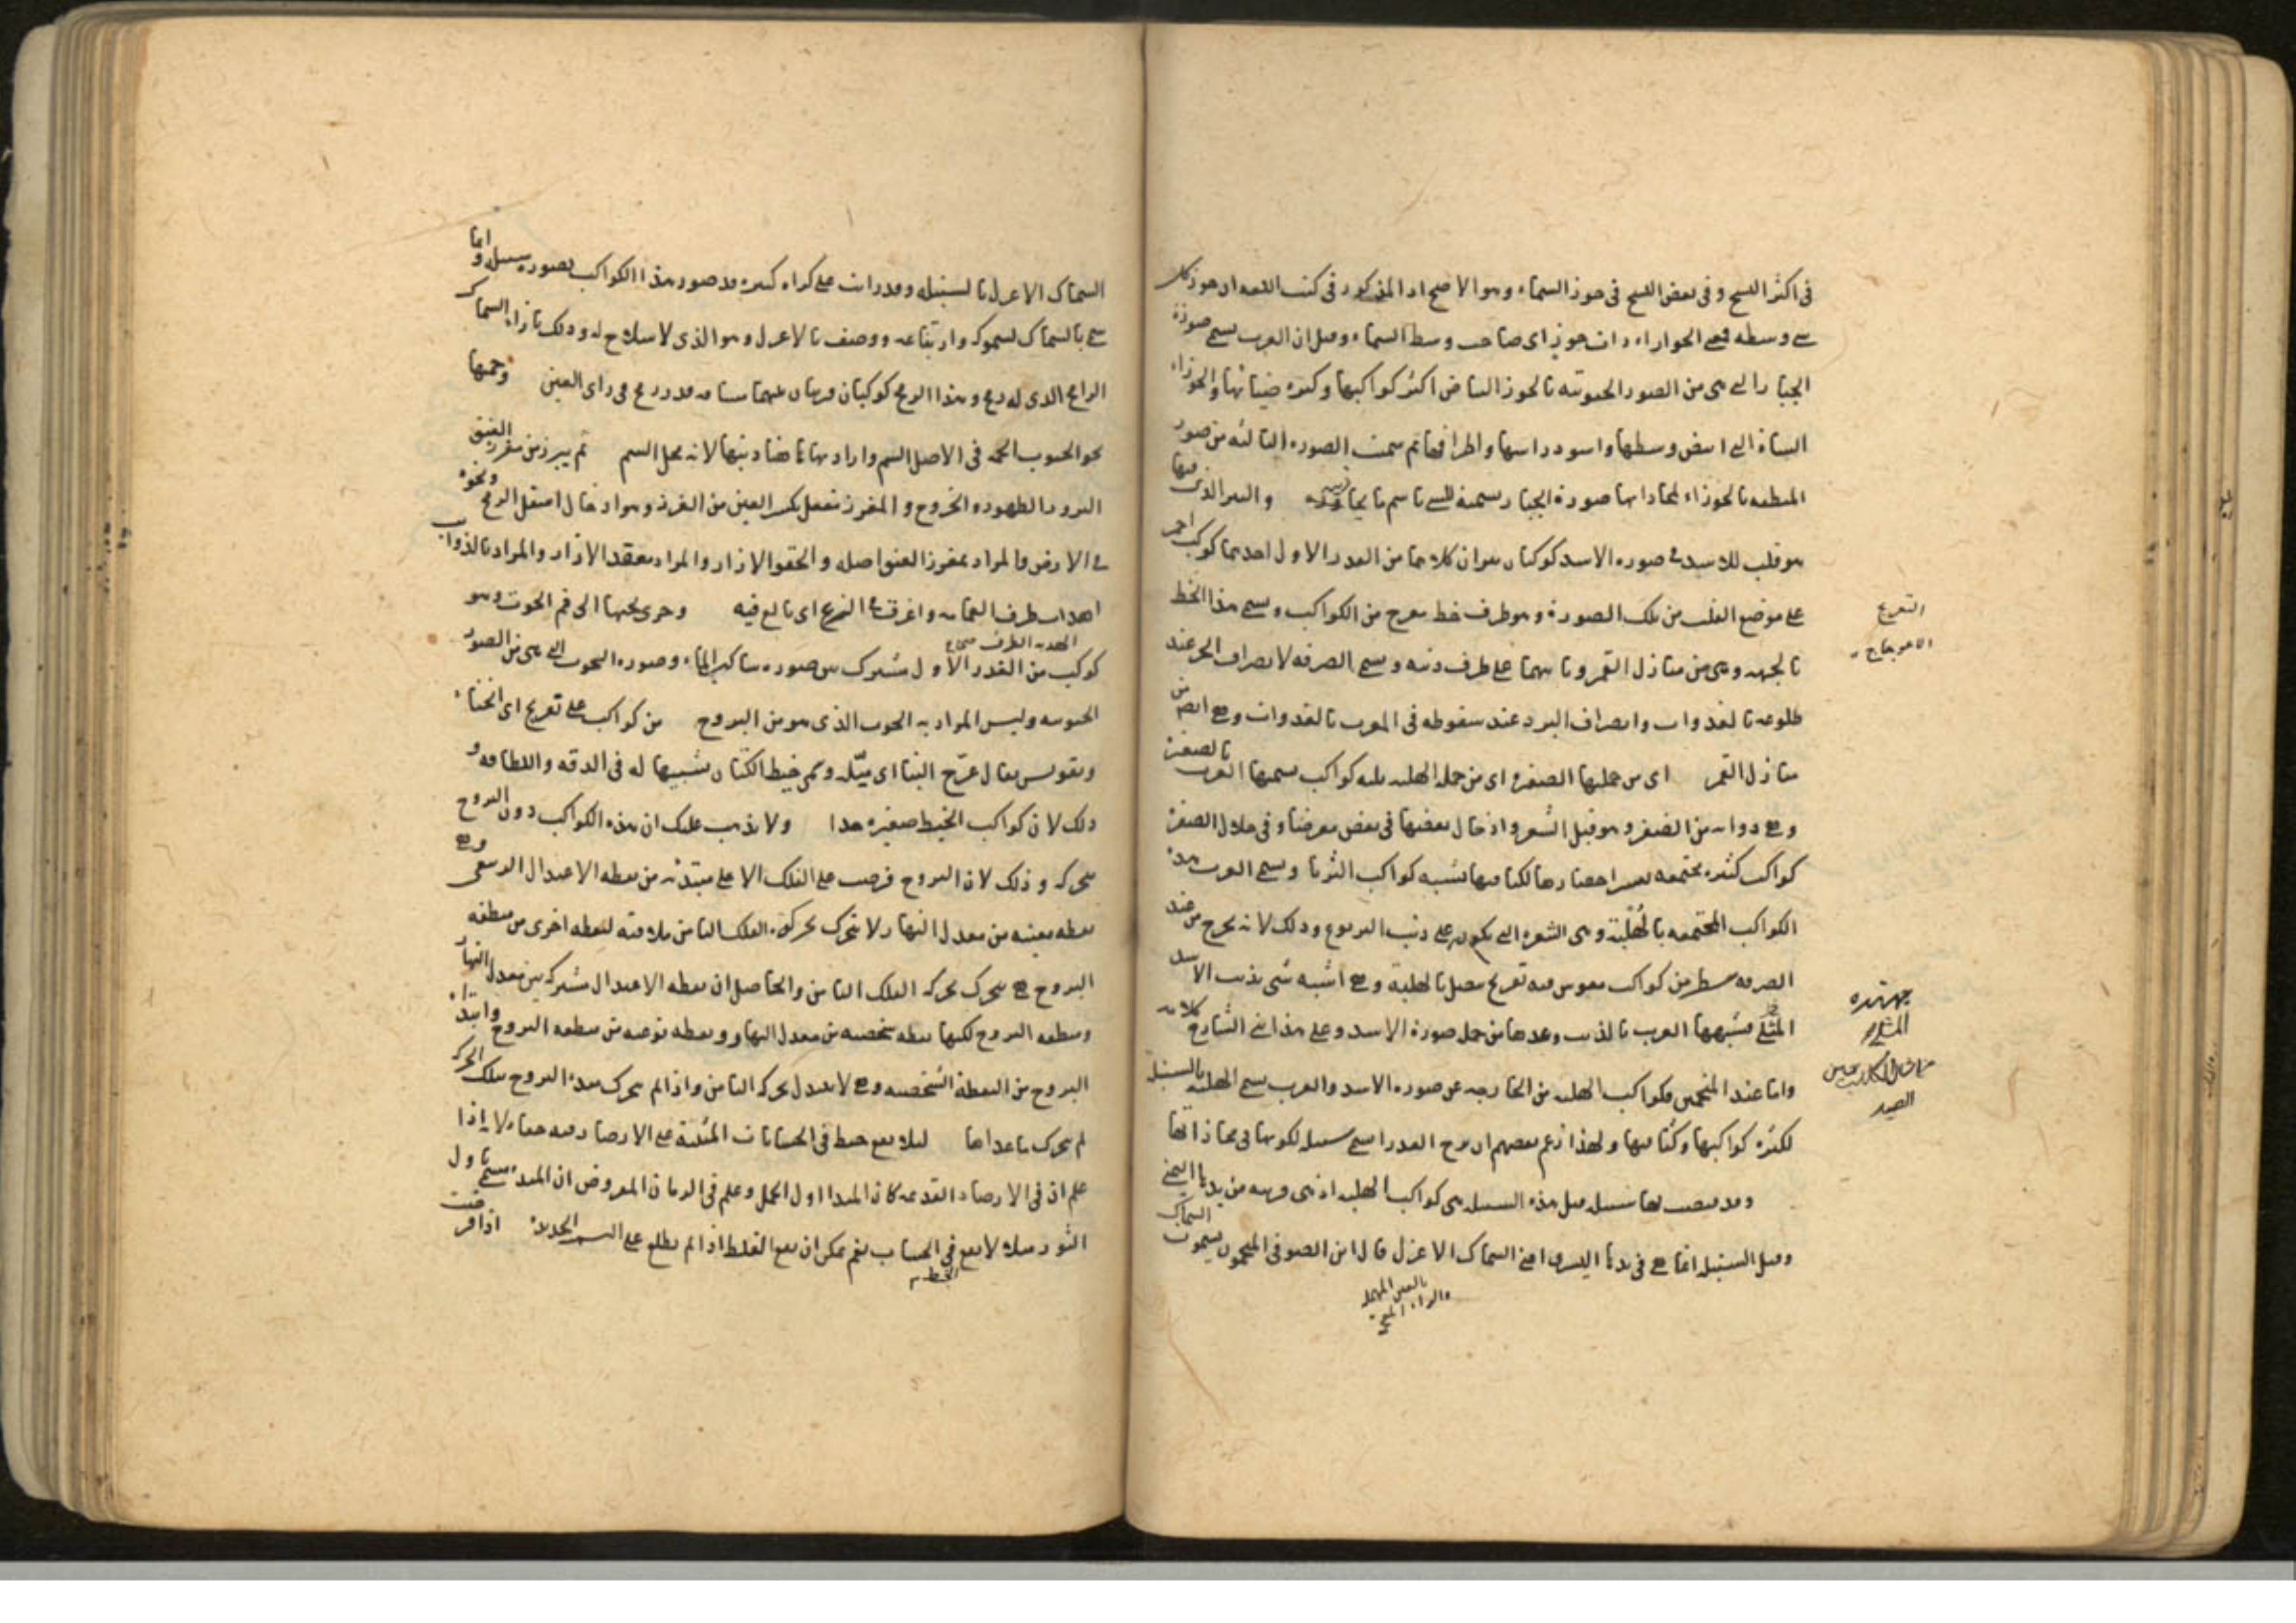 في اكثر النسخ وفي بعض النسخ في جوز السماء وهو الاصح اذ المذكور في كتب اللغه ان جوز كل
شي وسطه فمعنى الجوزاء ذات جوز اى صاحب وسط السماء وقيل ان العرب يسمى صورة
الجبار التي هى من الصور الجنوبيه بالجوزا لبياض اكثر كواكبها وكثره ضيائها والجوزاء
الشاة التي ابيض وسطها واسود راسها واطرافها ثم سميت الصوره الثالثه من صور
المنطقه بالجوزاء لمحاذاتها صورة الجبار تسميه للشي باسم ما يجاوره والنير الذي
هو قلب للاسد في صوره الاسد كوكبان نيران كلاهما من القدر الاول احدهما كوكب احمر
على موضع القلب من تلك الصورة وهو طرف خط معرج من الكواكب ويسمى هذا الخط
بالجبهه وهى من منازل القمر وثانيهما على طرف ذنبه ويسمى الصرفه لانصراف الحر عند
طلوعه بالغدوات وانصراف البرد عند سقوطه في المغرب بالغدوات وهى ايضا من
منازل القمر اى من جملتها الضفيره اى من جمله الهلبه ثلثه كواكب يسميها العرب بالضفيرة
وهى ذوابه من الضفر وهو فتل الشعر وادخال بعضها في بعض معرضا وفي خلال الضفيرة
كواكب كثيره مجتمعه يعسر احصارها لكثافتها تشبه كواكب الثريا ويسمى العرب هذه
الكواكب المجتمعه بالهلبة وهى الشعره التي يكون على ذنب اليربوع وذلك لانه يخرج من عند
الصرفه سطر من كواكب مقوس فيه تعريج متصل بالهلبة وهى اشبه شى بذنب الاسد
فشبهها العرب بالذنب وعدها من جمله صورة الاسد وعلى هذا بنى الشارح كلامه
واما عند المنجمين فكواكب الهلبه من الخارجه عن صوره الاسد والعرب يسمى الهلبه بالسنبله
لكثرة كواكبها وكثافتها ولهذا زعم بعضهم ان برج العذرا سمى سنبله لكونها في محاذاتها
وقيل هذه السنبله هى كواكب الهلبه اذ هى قريبه من يدها اليمنى
وقيل السنبله انما هى في يدها اليسرى اعني السماك الاعزل قال ابن الصوفي المنجمون يسمون السماك
بالعين المهمله
والزاء المعجمه
التعريج
الاعوجاج
السماك الاعزل بالسنبله وقد رايت على كراه كثيره قد صور هذا الكواكب بصوره سنبله واما
سمي بالسماك لسموكه وارتفاعه ووصف بالاعزل وهو الذي لا سلاح له وذلك بازاء السماك
الرامح الذى له رمح وهذا الرمح كوكبان في راى العين وحمتها
الحمه في الاصل السم واراد بها هاهنا ذنبها لانه محل السم ثم يبرز من مغرز العنق
البروز الظهور والخروج والمغرز مفعل بكسر العين من الغرز وهو ادخال اسفل الرمح ونحوه
في الارض والمراد بمغرز العنق اصله والحقو الازار والمراد معقد الازار والمراد بالذوايب
اهداب طرف العمامه واغرق في النزع اى بالغ فيه وجرى تحتها الى فم الحوت وهو
كوكب من القدر الاول مشترك بين صوره ساكب الماء وصوره الحوت التي هى من الصور
الجنوبيه وليس المراد به الحوت الذى هو من البروج من كواكب على تعريج اى انحناء
وتقويس يقال عرّج البنا اى ميّله وسمى خيط الكتان تشبيها له في الدقه واللطافه و
ذلك لان كواكب الخيط صغيره جدا ولا يذهب عليك ان هذه الكواكب دون البروج
متحركه وذلك لان البروج فرضت على الفلك الاعلى مبتدئه من نقطه الاعتدال الربيعى وهى
نقطه معينه من معدل النهار ولا يتحرك بحركة الفلك الثامن ملاقيه لنقطه اخرى من منطقه
البروج هى يتحرك بحركه الفلك الثامن والحاصل ان نقطه الاعتدال مشتركه بين معدل النهار
ومنطقه البروج لكنها نقطه شخصيه من معدل النهار ونقطه نوعيه من منطقه البروج وابتداء
البروج من النقطة الشخصيه وهى لا يتبدل بحركه الثامن واذا لم يتحرك مبدء البروج بتلك الحركه
لم يتحرك ما عداها لئلا يقع خبط في الحسابات المبنيّة على الارصاد وفيه خفاء لانه اذا
علم ان في الارصاد القديمه كان المبدا اول الحمل وعلم في الزمان المفروض ان المبدء
الثور مثلا لا يقع في الحساب نعم يمكن ان يقع الغلط اذا لم يطلع على